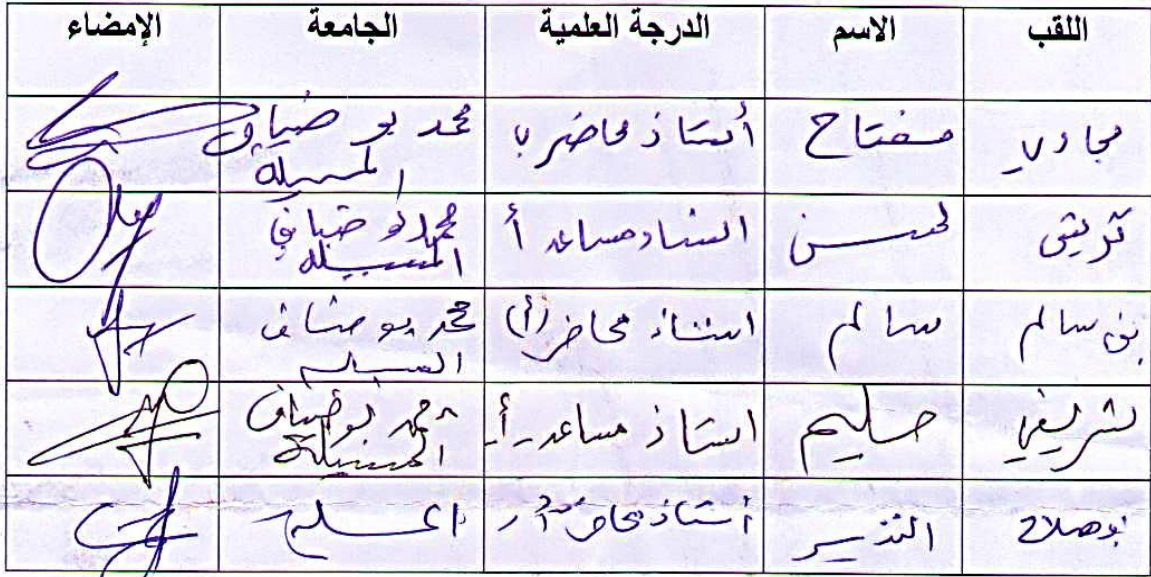 اللقب الاسم الدرجة العلمية الجامعة الإمضاء
مفتاح أستاذ محاضر ب محمد بوضياف
المسيلة
لحسن استاذ مساعد أ محمد بوضياف
المسيلة
بن سالم سالم استاذ محاضر (أ) محمد بوضياف
المسيلة
شريفي حليم استاذ مساعد أ محمد بوضياف
المسيلة
استاذ محاضر أ